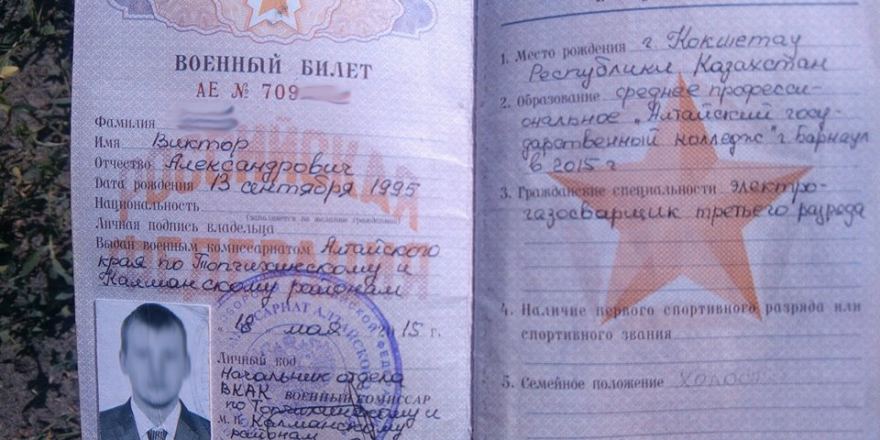 ВОЕННЫЙ БИЛЕТ
АЕ № 709
Фамилия
Имя Виктор
Отчество Александрович
Дата рождения 13 сентября 1995
Национальность
(заполняется по желанию гражданина)
Личная подпись владельца
Выдан военным комиссариатом Алтайского
края по Топчихинскому и
Калманскому районам
18 мая 2015 г.
Личный код
Начальник отдела
ВКАК ВОЕННЫЙ КОМИССАР
по Топчихинскому и
М. П. Калманскому
районам
1. Место рождения г. Кокшетау
Республики Казахстан
2. Образование среднее професси-
ональное „Алтайский госу-
дарственный колледж" г. Барнаул
в 2015 г
3. Гражданские специальности электро-
газосварщик третьего разряда
4. Наличие первого спортивного разряда или
спортивного звания
5. Семейное положение холост